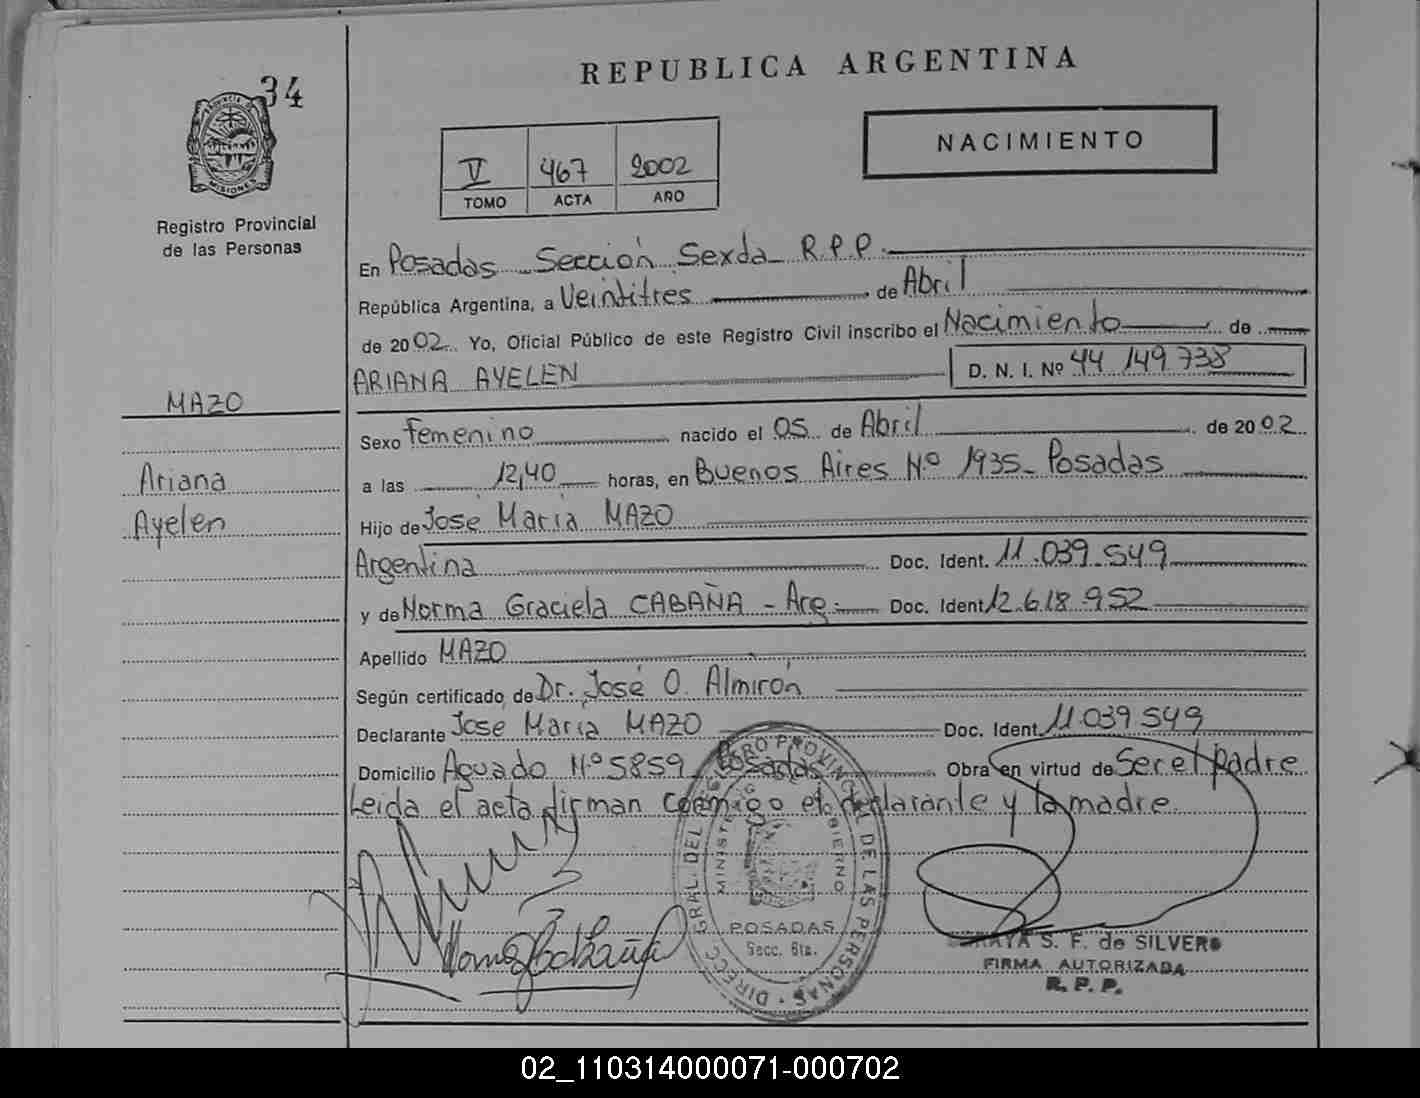 34
REPUBLICA ARGENTINA
NACIMIENTO
V 467 2002
TOMO ACTA AÑO
PROVINCIA DE MISIONES
Registro Provincial
de las Personas
En Posadas Sección Sexda R.P.P.
República Argentina, a Veintitres de Abril
de 2002 Yo, Oficial Público de este Registro Civil inscribo el Nacimiento de
ARIANA AYELEN D. N. I. Nº 44 149.738
MAZO
Ariana
Ayelen
Sexo femenino nacido el 05 de Abril de 2002
a las 12,40 horas, en Buenos Aires Nº 1935 - Posadas
Hijo de José María MAZO
Argentina Doc. Ident. 11.039.549
y de Norma Graciela CABAÑA - Arg. Doc. Ident 12.618.952
Apellido MAZO
Según certificado de Dr. José O. Almirón
Declarante José María MAZO Doc. Ident. 11.039 549
Domicilio Aguado Nº 5859 Posadas Obra en virtud de Ser el padre
Leida el acta firman conmigo el declarante y la madre.
DIRECC. GRAL. DEL REGISTRO PROVINCIAL DE LAS PERSONAS
MINISTERIO GOBIERNO
POSADAS
Secc. 6ta.
S. F. de SILVERO
FIRMA AUTORIZADA
R. P. P.
02_110314000071-000702